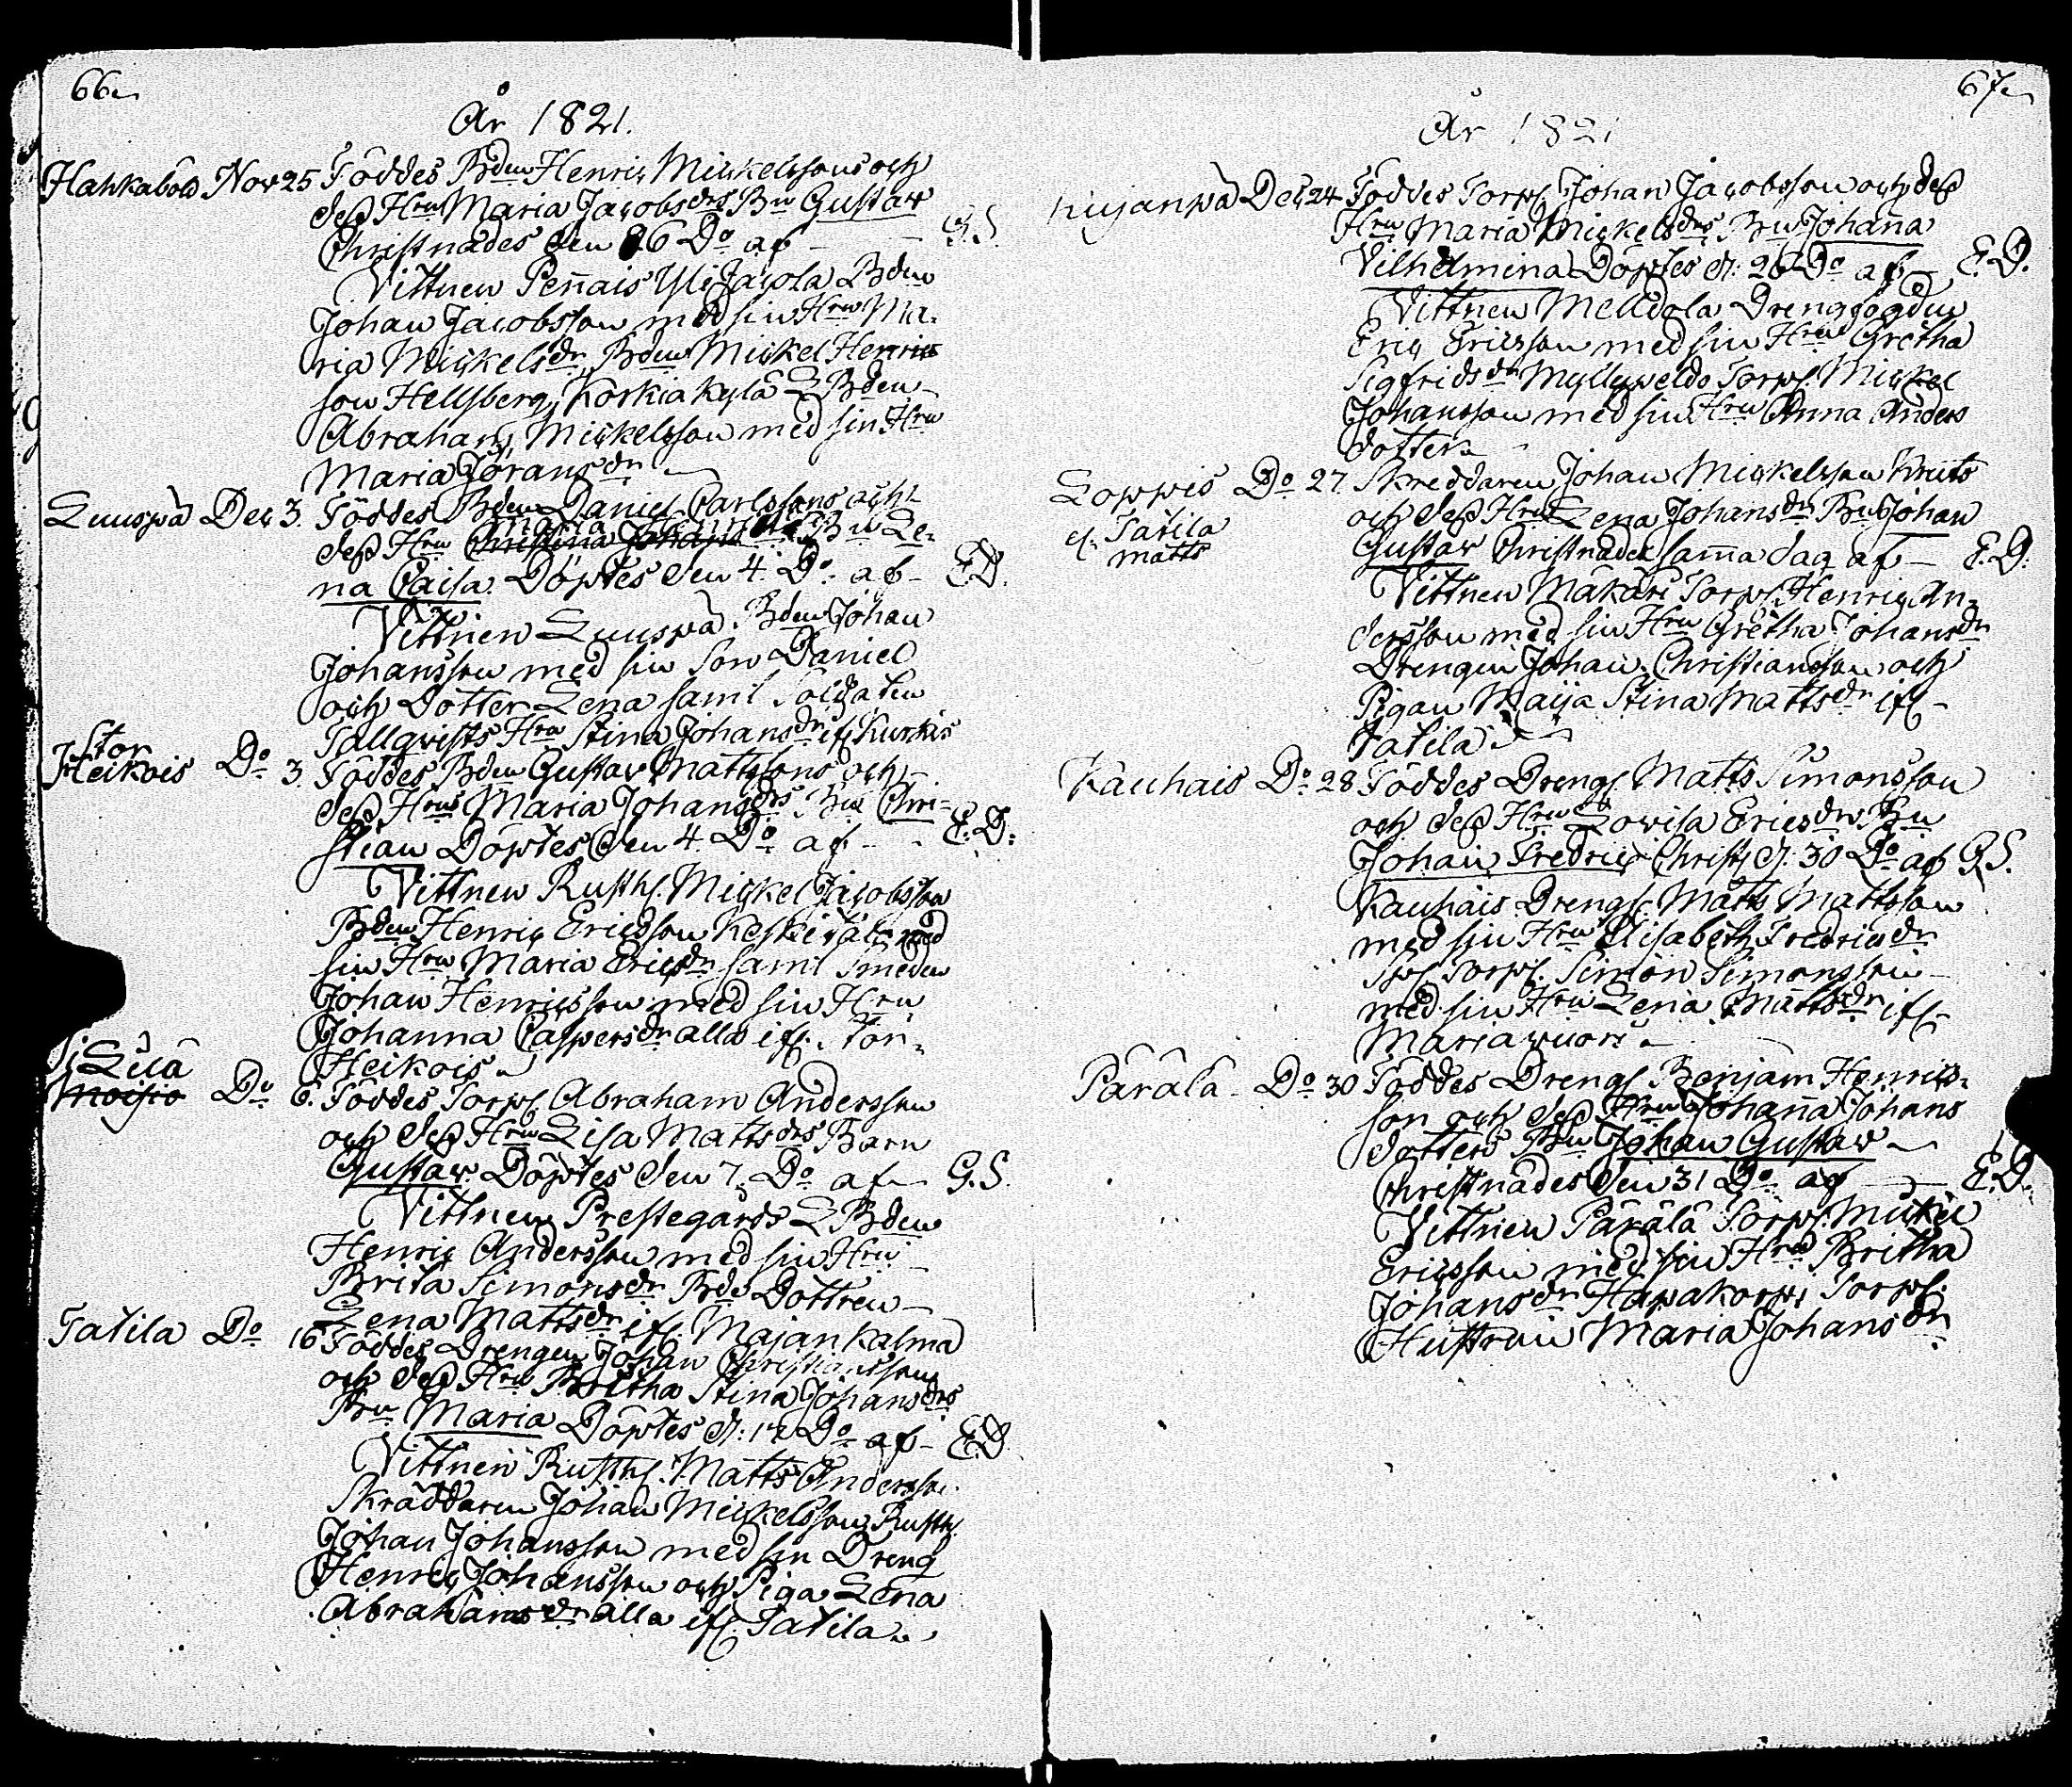 66.
År 1821.
Hahkabold Nov 25 Föddes Bden Henric Mickelssons och
dess Hru Maria Jacobsdrs Bn Gustav
Christnades den 26 Do af - G.S.
Vittnen Pennais Yli Jacola Bden
Johan Jacobsson med sin Hru Ma-
ria Mickelsdr, Bden Mickel Henrics
son Hellsberg, Korkiakylä Bden
Abraham Mickelsson med sin Hru
Maria Göransdr
Luuspä Dec 3. Föddes Bden Daniel Carlssons och
Maria
dess Hru Christina Johans Bn Le-
na Caisa Döptes den 4. Do af - E.D.
Vittnen Luuspä Bden Johan
Johansson med sin Son Daniel
och Dotter Lena samt Soldaten
Tallqvists Hru Stina Johansdr ifr Kurkis
Stor
Heikois Do 3. Föddes Bden Gustav Mattssons och
dess Hrus Maria Johansdrs Bn Chri-
stian Döptes den 4 Do af - E.D.
Vittnen Rusth. Mickel Jacobsson
Bden Henric Ericsson Keskitalo med
sin Hru Maria Ericsdr samt Smeden
Johan Henricsson med sin Hru
Johanna Caspersdr alla ifr. Stor-
Heikois
Moisio Do 6. Föddes Torp. Abraham Andersson
och dess Hru Lisa Mattsdrs Barn
Gustav Döptes den 7. Do af G.S.
Vittnen Prestegårds L Bden
Henric Andersson med sin Hru
Brita Simonsdr Bde Dottren
Lena Mattsdr ifr. Majankalma
Tatila Do 16 Föddes Drengen Johan Christiansson
och dess Hru Britha Stina Johansdrs
Bn Maria Döptes d. 17 Do af - E.D.
Vittnen Rusth. Matts Anderss.
Skräddaren Johan Mickelsson, Rusth.
Johan Johansson med sin Dreng
Henric Johansson och Piga Lena
Abrahamsdr alla ifr. Tatila
67.
År 1821
Kujanpä Dec 24 Föddes Torp. Johan Jacobsson och dess
Hru Maria Mickelsdrs Bn Johanna
Vilhelmina Döptes d. 26 Do af E.D.
Vittnen Melldola Drengfogden
Eric Ericsson med sin Hru Gretha
Sigfridsdr Myllyweldo Torp. Mickel
Johansson med sin Hru Anna Anders
dotter
Loppis Do 27. Skreddaren Johan Mickelsson Kruts
och dess Hru Lena Johansdr Bn Johan
el. Tatila
matts
Gustav Christnades samma dag af - E.D.
Vittnen Mäkäri Torp. Henric An-
dersson med sin Hru Gretha Johansdr
Drengen Johan Christiansson och
Pigan Maija Stina Mattsdr ifr -
Tatila
Kauhais Do 28 Föddes Dreng. Matts Simonsson
och dess Hru Lovisa Ericsdrs Bn
Johan Fredric Christ. d. 30 Do af G.S.
Kauhais Dreng. Matts Mattsson
med sin Hru Elisabeth Fredricsdr
Torp. Simon Simonsson
med sin Hru Lena Mattsdr ifr
Mariawuori
Pärälä Do 30 Föddes Dreng. Benjam Henrics-
son och dess Hru Johanna Johans
dotters Bn Johan Gustav
Christnades den 31 Do af - E.D.
Vittnen Pärälä Torp. Mickel
Ericsson med sin Hru Britha
Johansdr Hapakorpi Torp.
Hustrun Maria Johansdr